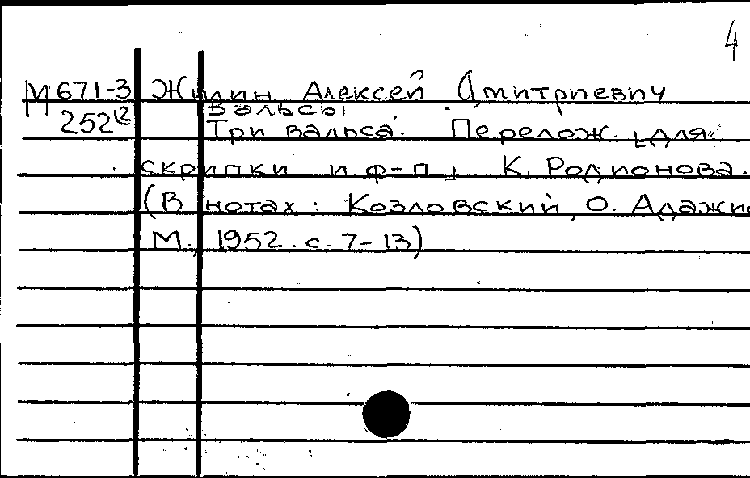 4
М671-3 Жилин Алексей Дмитриевич
Вальсы
252 Три вальса. Перелож. [для
скрипки и ф-п] К. Родионова.
(В нотах: Козловский, О. Адажио
М., 1952. с. 7-13)